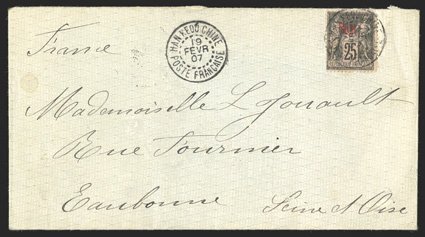 France
HAN-KEOU CHINE
19
FEVR
07
POSTE FRANÇAISE
25
Mademoiselle L Gouault
Rue Tournier
Eaubonne Seine & Oise